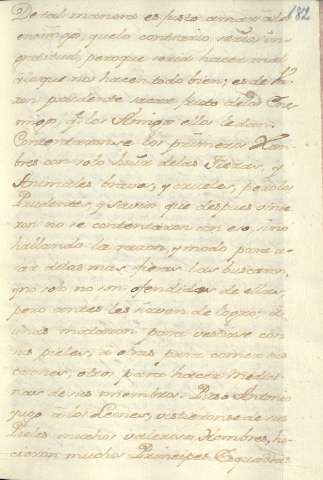 182
De tal manera es justo amar al
enemigo, que lo contrario
gratitud, porque seria hacer mal
à los que nos hacen todo bien; es de
prudente sacar fruto de los Ene-
migos, q.e los Amigos ellos le dan.
Contentaranse los primeros Hom-
bres con solo huir de las Fieras, y
Animales bravos, y crueles, pero los
Prudentes, y Savios que despues vinie-
ron no se contentaron con eso, sino
hallando la razon, y modo para u-
sar dellas mas, fieras las buscaron,
y no solo no son ofendidos de ellas,
pero antes les sirven de logro; à
unas mataron para vestirse con
sus pieles, à otras para comer sus
carnes, otros para hacer medici-
nas de sus miembros. Marco Antonio
jugo à los Leones, vistieronse de sus
Pieles muchos valerosos Hombres, hi-
cieron muchos Principes Esquadras